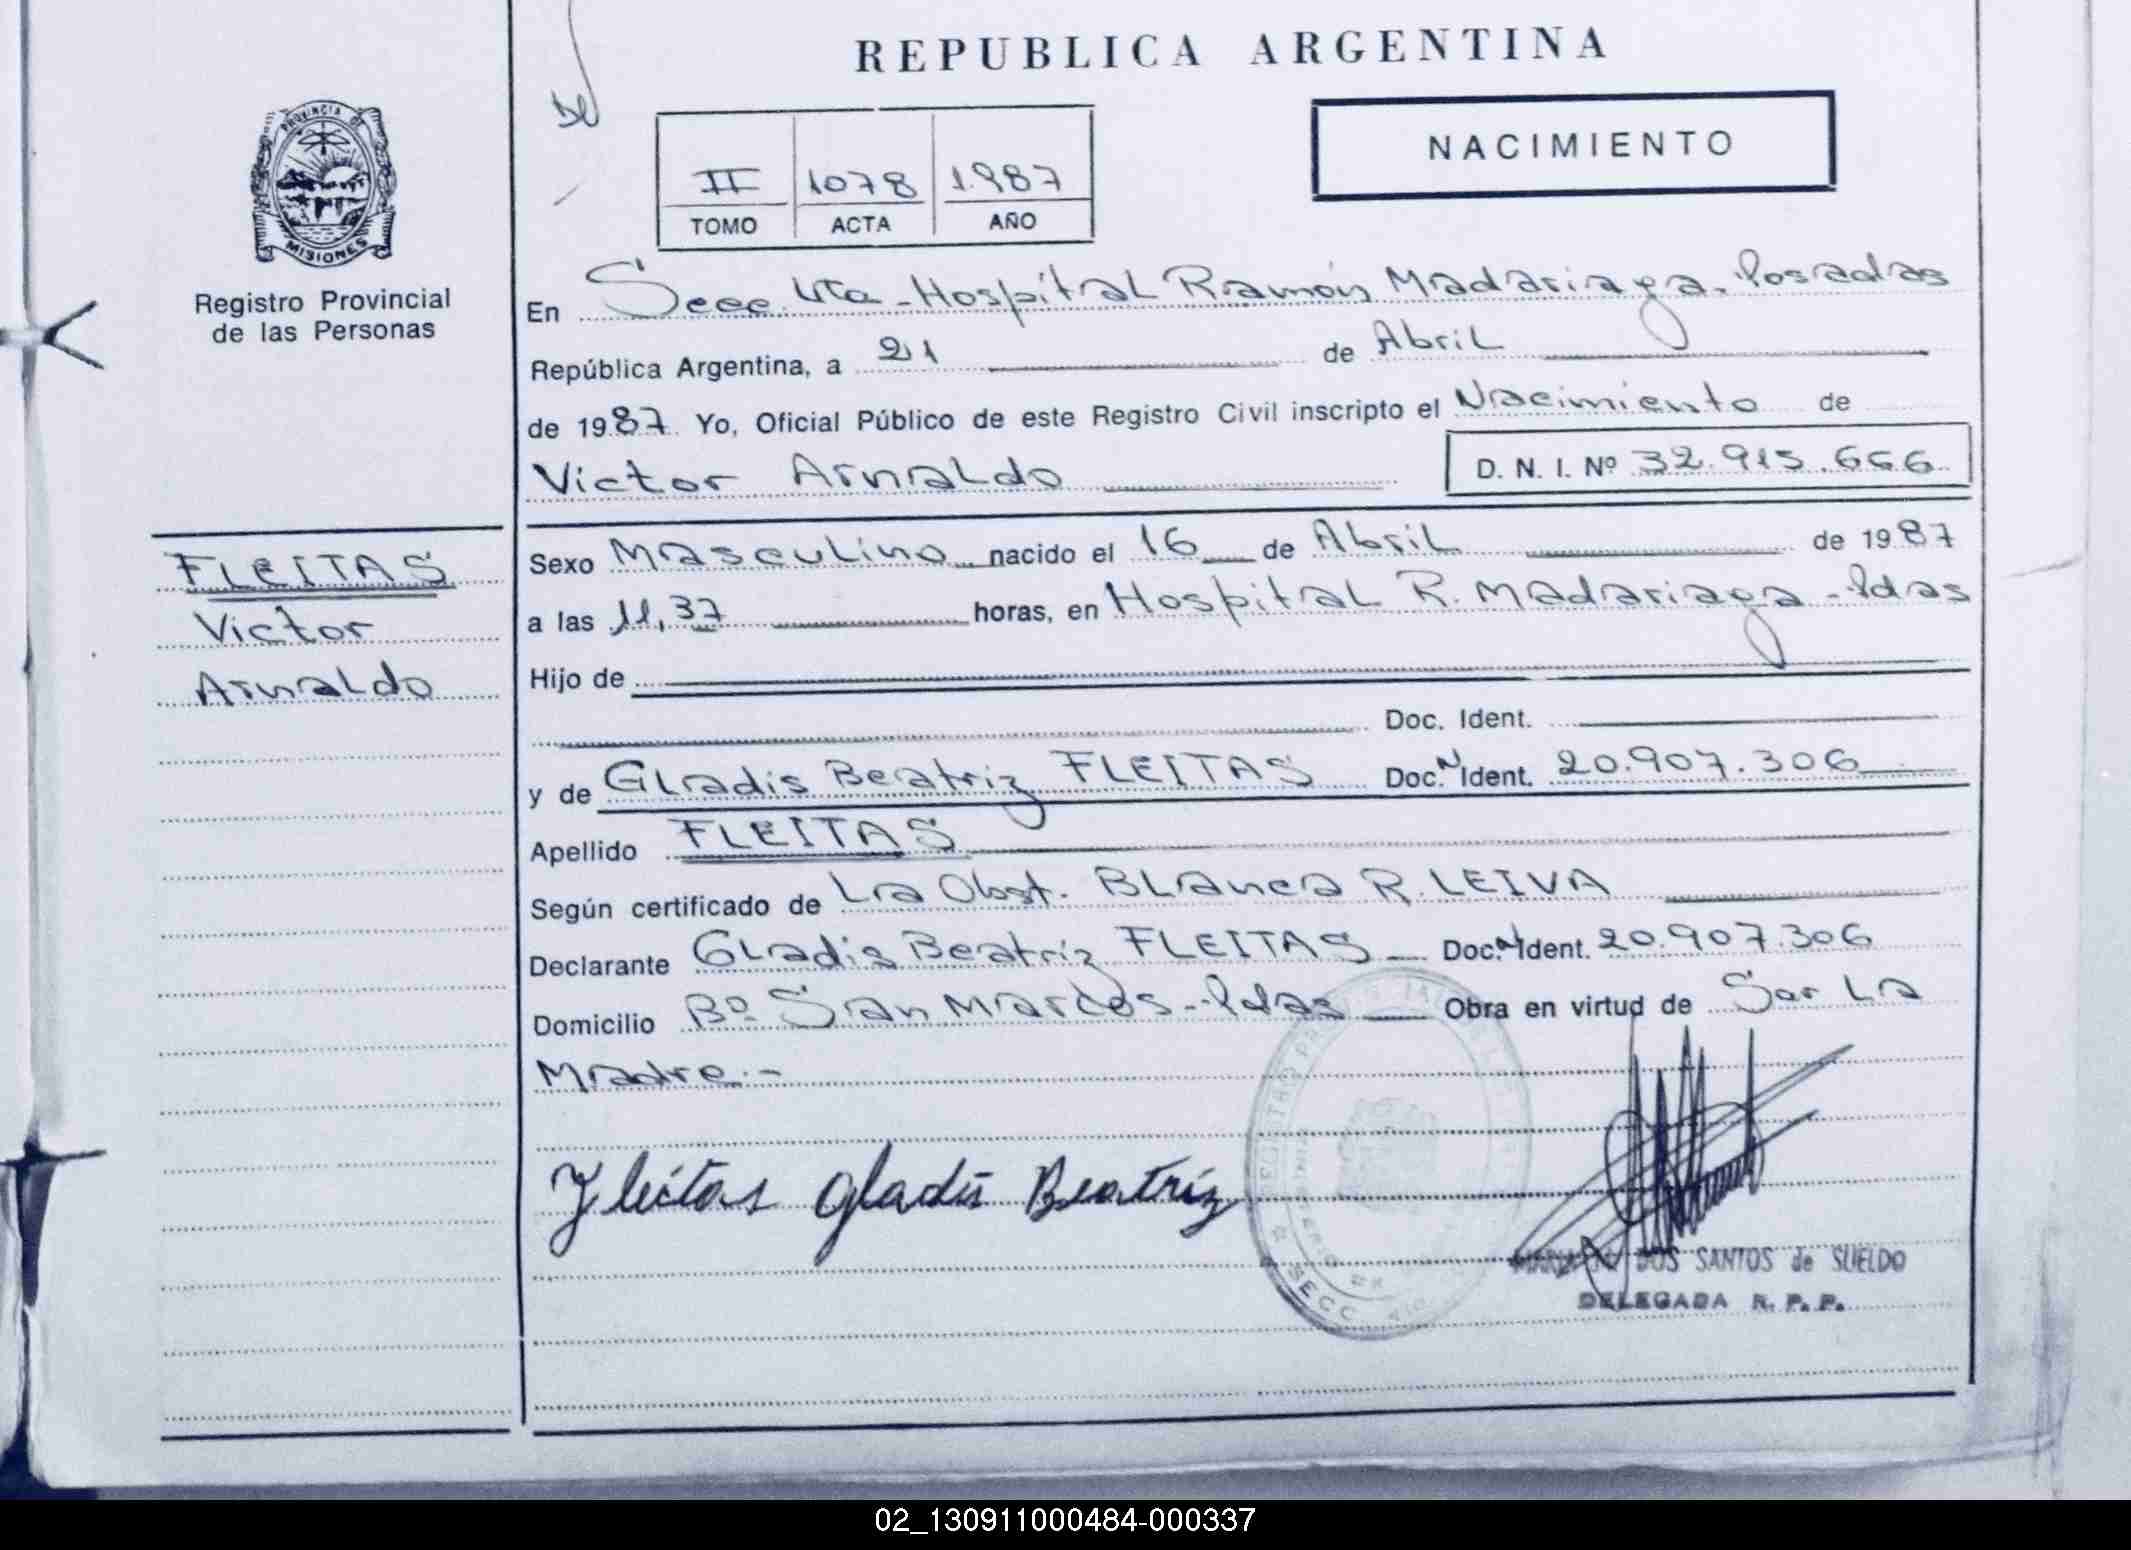 REPUBLICA ARGENTINA
NACIMIENTO
PROVINCIA DE
MISIONES
Registro Provincial
de las Personas
II 1078 1.987
TOMO ACTA AÑO
En Secc. Vta - Hospital Ramón Madariaga - Posadas
República Argentina, a 21 de Abril
de 1987 Yo, Oficial Público de este Registro Civil inscripto el Nacimiento de
Victor Arnaldo D. N. I. Nº 32.915.666
FLEITAS
Victor
Arnaldo
Sexo Masculino nacido el 16 de Abril de 1987
a las 11,37 horas, en Hospital R. Madariaga - Pdas
Hijo de
Doc. Ident.
y de Gladis Beatriz FLEITAS Doc. N Ident. 20.907.306
Apellido FLEITAS
Según certificado de La Obst. Blanca R. LEIVA
Declarante Gladis Beatriz FLEITAS Doc. N Ident. 20.907.306
Domicilio Bº San Marcos - Pdas Obra en virtud de Ser La
Madre.-
Fleitas Gladis Beatriz
DOS SANTOS de SUELDO
DELEGADA R. P. P.
SECC
02_130911000484-000337